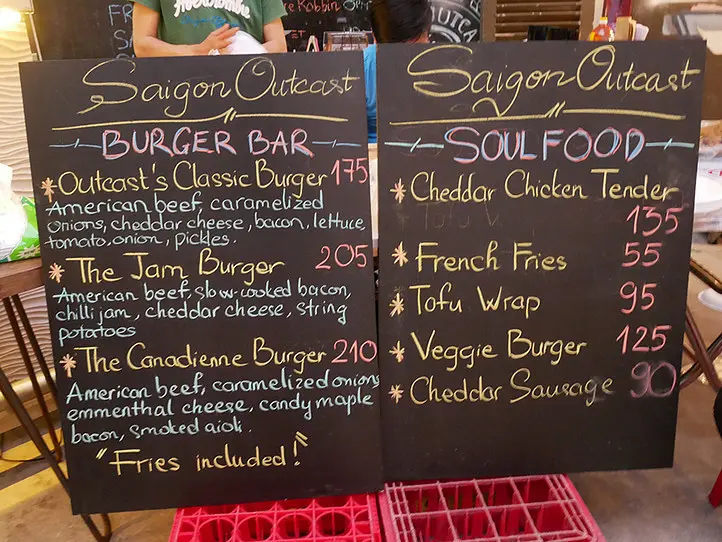 Saigon Outcast
BURGER BAR
* Outcast's Classic Burger 175
American beef, caramelized
onions, cheddar cheese, bacon, lettuce,
tomato, onion, pickles.
* The Jam Burger 205
American beef, slow-cooked bacon,
chilli jam, cheddar cheese, string
potatoes
* The Canadienne Burger 210
American beef, caramelized onions
emmenthal cheese, candy maple
bacon, smoked aioli.
"Fries included!"
Saigon Outcast
SOULFOOD
* Cheddar Chicken Tender
135
* French Fries 55
* Tofu Wrap 95
* Veggie Burger 125
* Cheddar Sausage 90